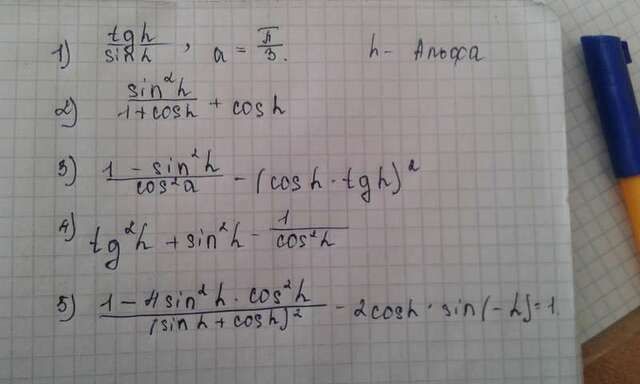 1) tgh/sinh, a = π/3. h - Альфа
2) sin²h/(1+cosh) + cosh
3) (1 - sin²h)/cos²a - (cosh · tgh)²
4) tg²h + sin²h - 1/cos²h
5) (1 - 4sin²h · cos²h)/(sinh + cosh)² - 2cosh · sin(-h) = 1.